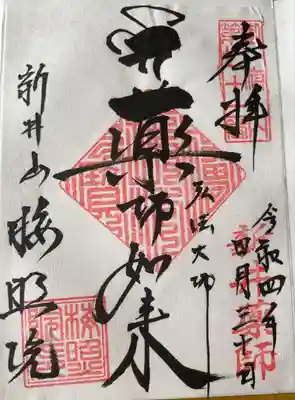 奉拝
令和四年
四月三十日
新井薬師
弘法大師
薬師如来
新井山梅照院
梅照院